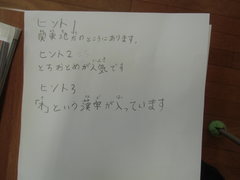 ヒント1
関東地方のところにあります。
ヒント2
とちおとめが人気です
ヒント3
「木」という漢字が入っています